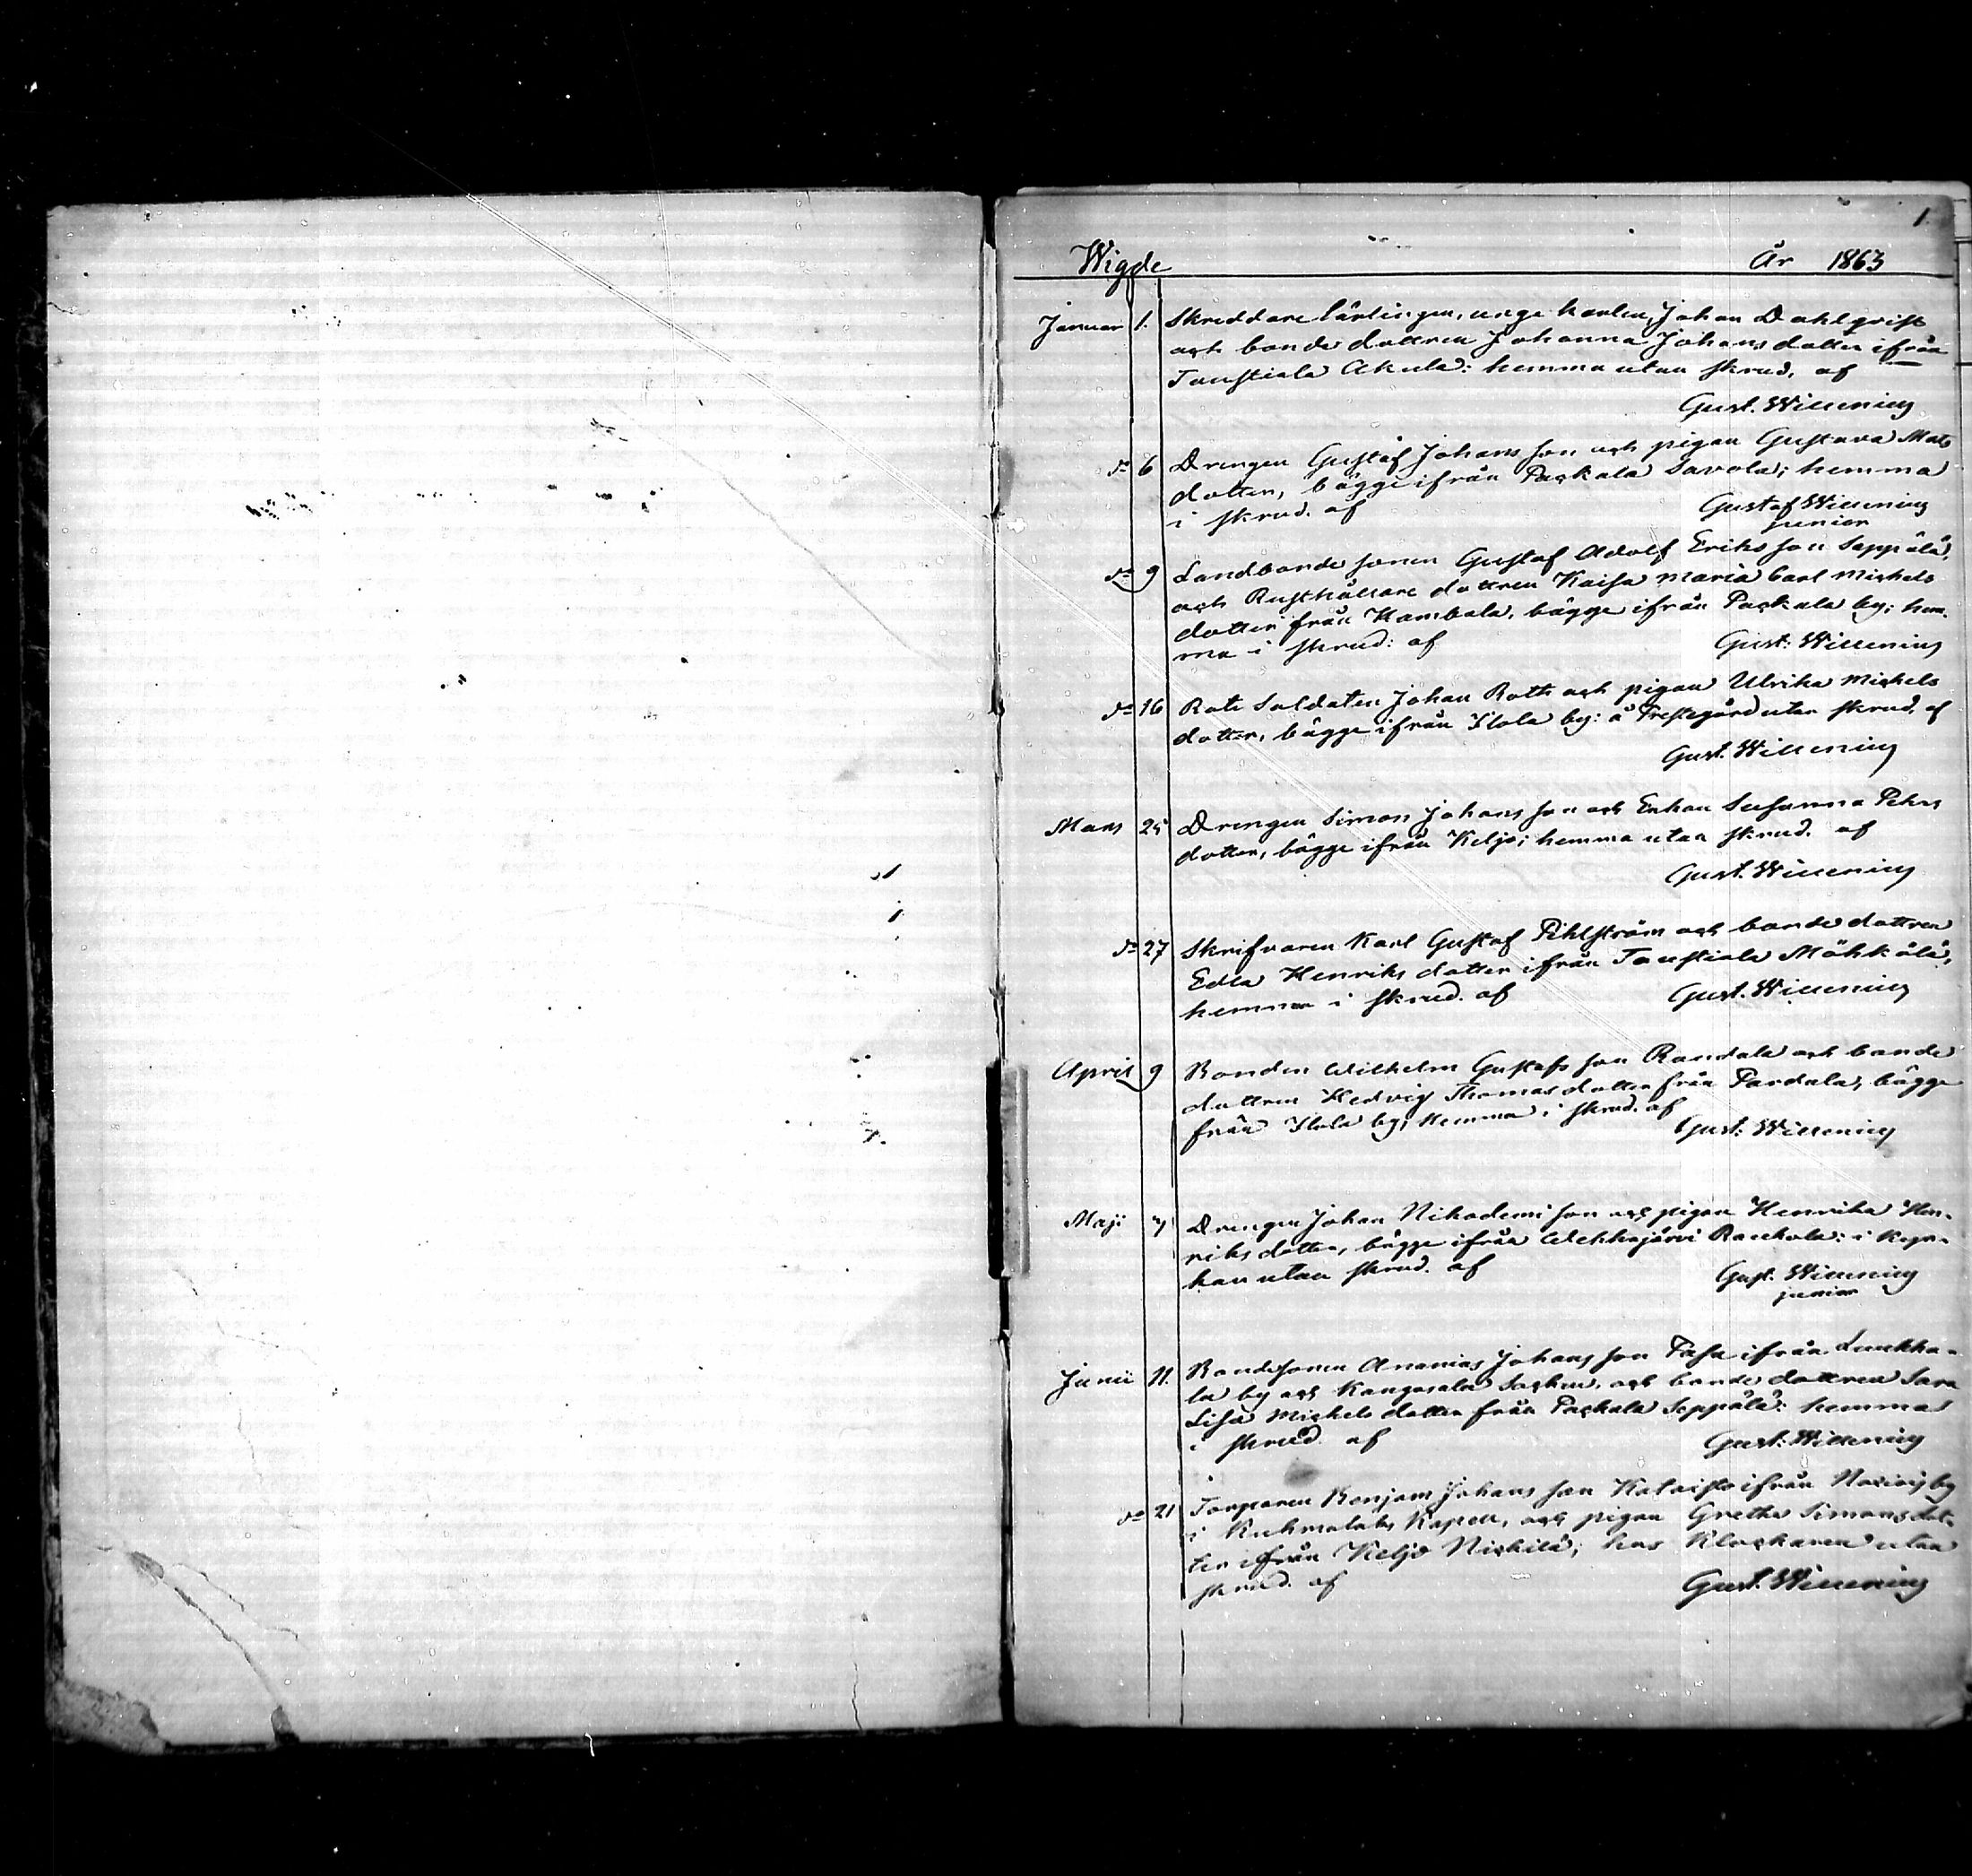 1.
Wigde År 1863
Januar 1. Skreddare lärlingen, unge karlen, Johan Dahlqvist
och bonde dottren Johanna Johans dotter ifrån
Taustiala Akula: hemma utan skrud, af
Gust. Willenius
do 6 Drengen Gustaf Johans son och pigan Gustava Mats
dotter, bägge ifrån Packala Savola; hemma
i skrud. af
Gustaf Willenius
junior
do 9 Landbonde sonen Gustaf Adolf Eriks son Seppälä,
och Rusthållare dottren Kaisa Maria Carl Michels
dotter från Kambala, bägge ifrån Packala by; hem-
ma i skrud: af Gust: Willenius
do 16 Rote Soldaten Johan Roth och pigan Ulrika Michels
dotter, bägge ifrån Ilola by: å Prestegård utan skrud, af
Gust. Willenius
Mars 25 Drengen Simon Johans son och Enkan Susanna Pehrs
dotter, bägge ifrån Keljo; hemma utan skrud. af
Gust. Willenius
do 27 Skrifvaren Karl Gustaf Pihlström och bonde dottren
Edla Henriks dotter ifrån Taustiala Möhkälä;
hemma i skrud. af Gust. Willenius
April 9 Bonden Wilhelm Gustafs son Randala och bonde
dottren Hedvig Thomas dotter från Pardala, bägge
från Ilola by; hemma i skrud. af
Gust: Willenius
Maji 7 Drengen Johan Nikodemi son och pigan Henrika Hen-
riks dotter, bägge ifrån Wehkajärvi Rauhola: i Kyr-
kan utan skrud. af
Gust. Willenius
junior
Junii 11. Bondesonen Ananias Johans son Pasa ifrån Liuckha-
la by och Kangasala Socken, och bonde dottren Sara
Lisa Michels dotter från Packala Seppälä: hemma
i skrud. af Gust: Willenius
do 21 Torparen Benjam Johans son Kalaisto ifrån by
i Kuhmalahti Kapell, och pigan Gretha Simons dot-
ter ifrån Keljo Nickilä; hos Klockaren utan
skrud. af Gust. Willenius